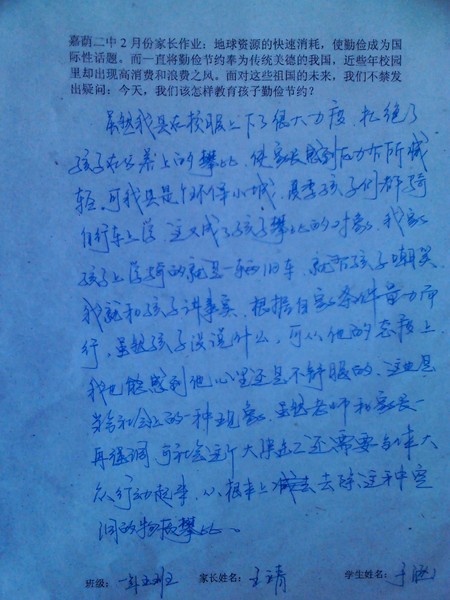 嘉荫二中2月份家长作业：地球资源的快速消耗，使勤俭成为国
际性话题。而一直将勤俭节约奉为传统美德的我国，近些年校园
里却出现高消费和浪费之风。面对这些祖国的未来，我们不禁发
出疑问：今天，我们该怎样教育孩子勤俭节约？
虽然我县在校服上下了很大力度，杜绝了
孩子在穿着上的攀比，使家长感到压力有所减
轻。可我县是个小城，夏季孩子们都骑
自行车上学，这又成了孩子攀比的对象。我家
孩子上学骑的就是一辆旧车，就有孩子嘲笑
我就和孩子讲事实，根据自家条件量力而
行，虽然孩子没说什么，可从他的态度上
我也能感到他心里还是不舒服的。这也是
社会上的一种现象。虽然老师和家长一
再强调，可社会这个大还需要大
众行动起来，从根本上去除这种空
洞的攀比。
班级：一年五班 家长姓名：王靖 学生姓名：于